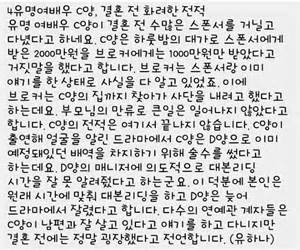 4유명여배우 C양, 결혼 전 화려한 전적
유명여배우 C양이 결혼 전 수많은 스폰서를 거닐고
다녔다고 하네요. C양은 하룻밤의 대가로 스폰서에게
받은 2000만원을 브로커에게는 1000만원만 받았다고
거짓말을 했다고 합니다. 브로커는 스폰서랑 이미
얘기를 한 상태로 사실을 다 알고 있었죠. 이에
브로커는 C양의 집까지 찾아가 사단을 내려고 했다고
하는데요. 부모님의 만류로 큰일은 일어나지 않았다고
합니다. C양의 전적은 여기서 끝나지 않습니다. C양이
출연해 얼굴을 알린 드라마에서 C양은 D양으로 이미
예정돼있던 배역을 차지하기 위해 술수를 썼다고
하는데요. D양의 매니저에 의도적으로 대본리딩
시간을 잘 못 알려줬다고 하는군요. 이 덕분에 본인은
원래 시간에 맞춰 대본리딩을 하고 D양은 늦어
드라마에서 잘렸다고 합니다. 다수의 연예관계자들은
C양이 남편과 잘 살고 있다고 얘기를 하고 다니지만
결혼 전에는 정말 굉장했다고 전언합니다. (유하나)